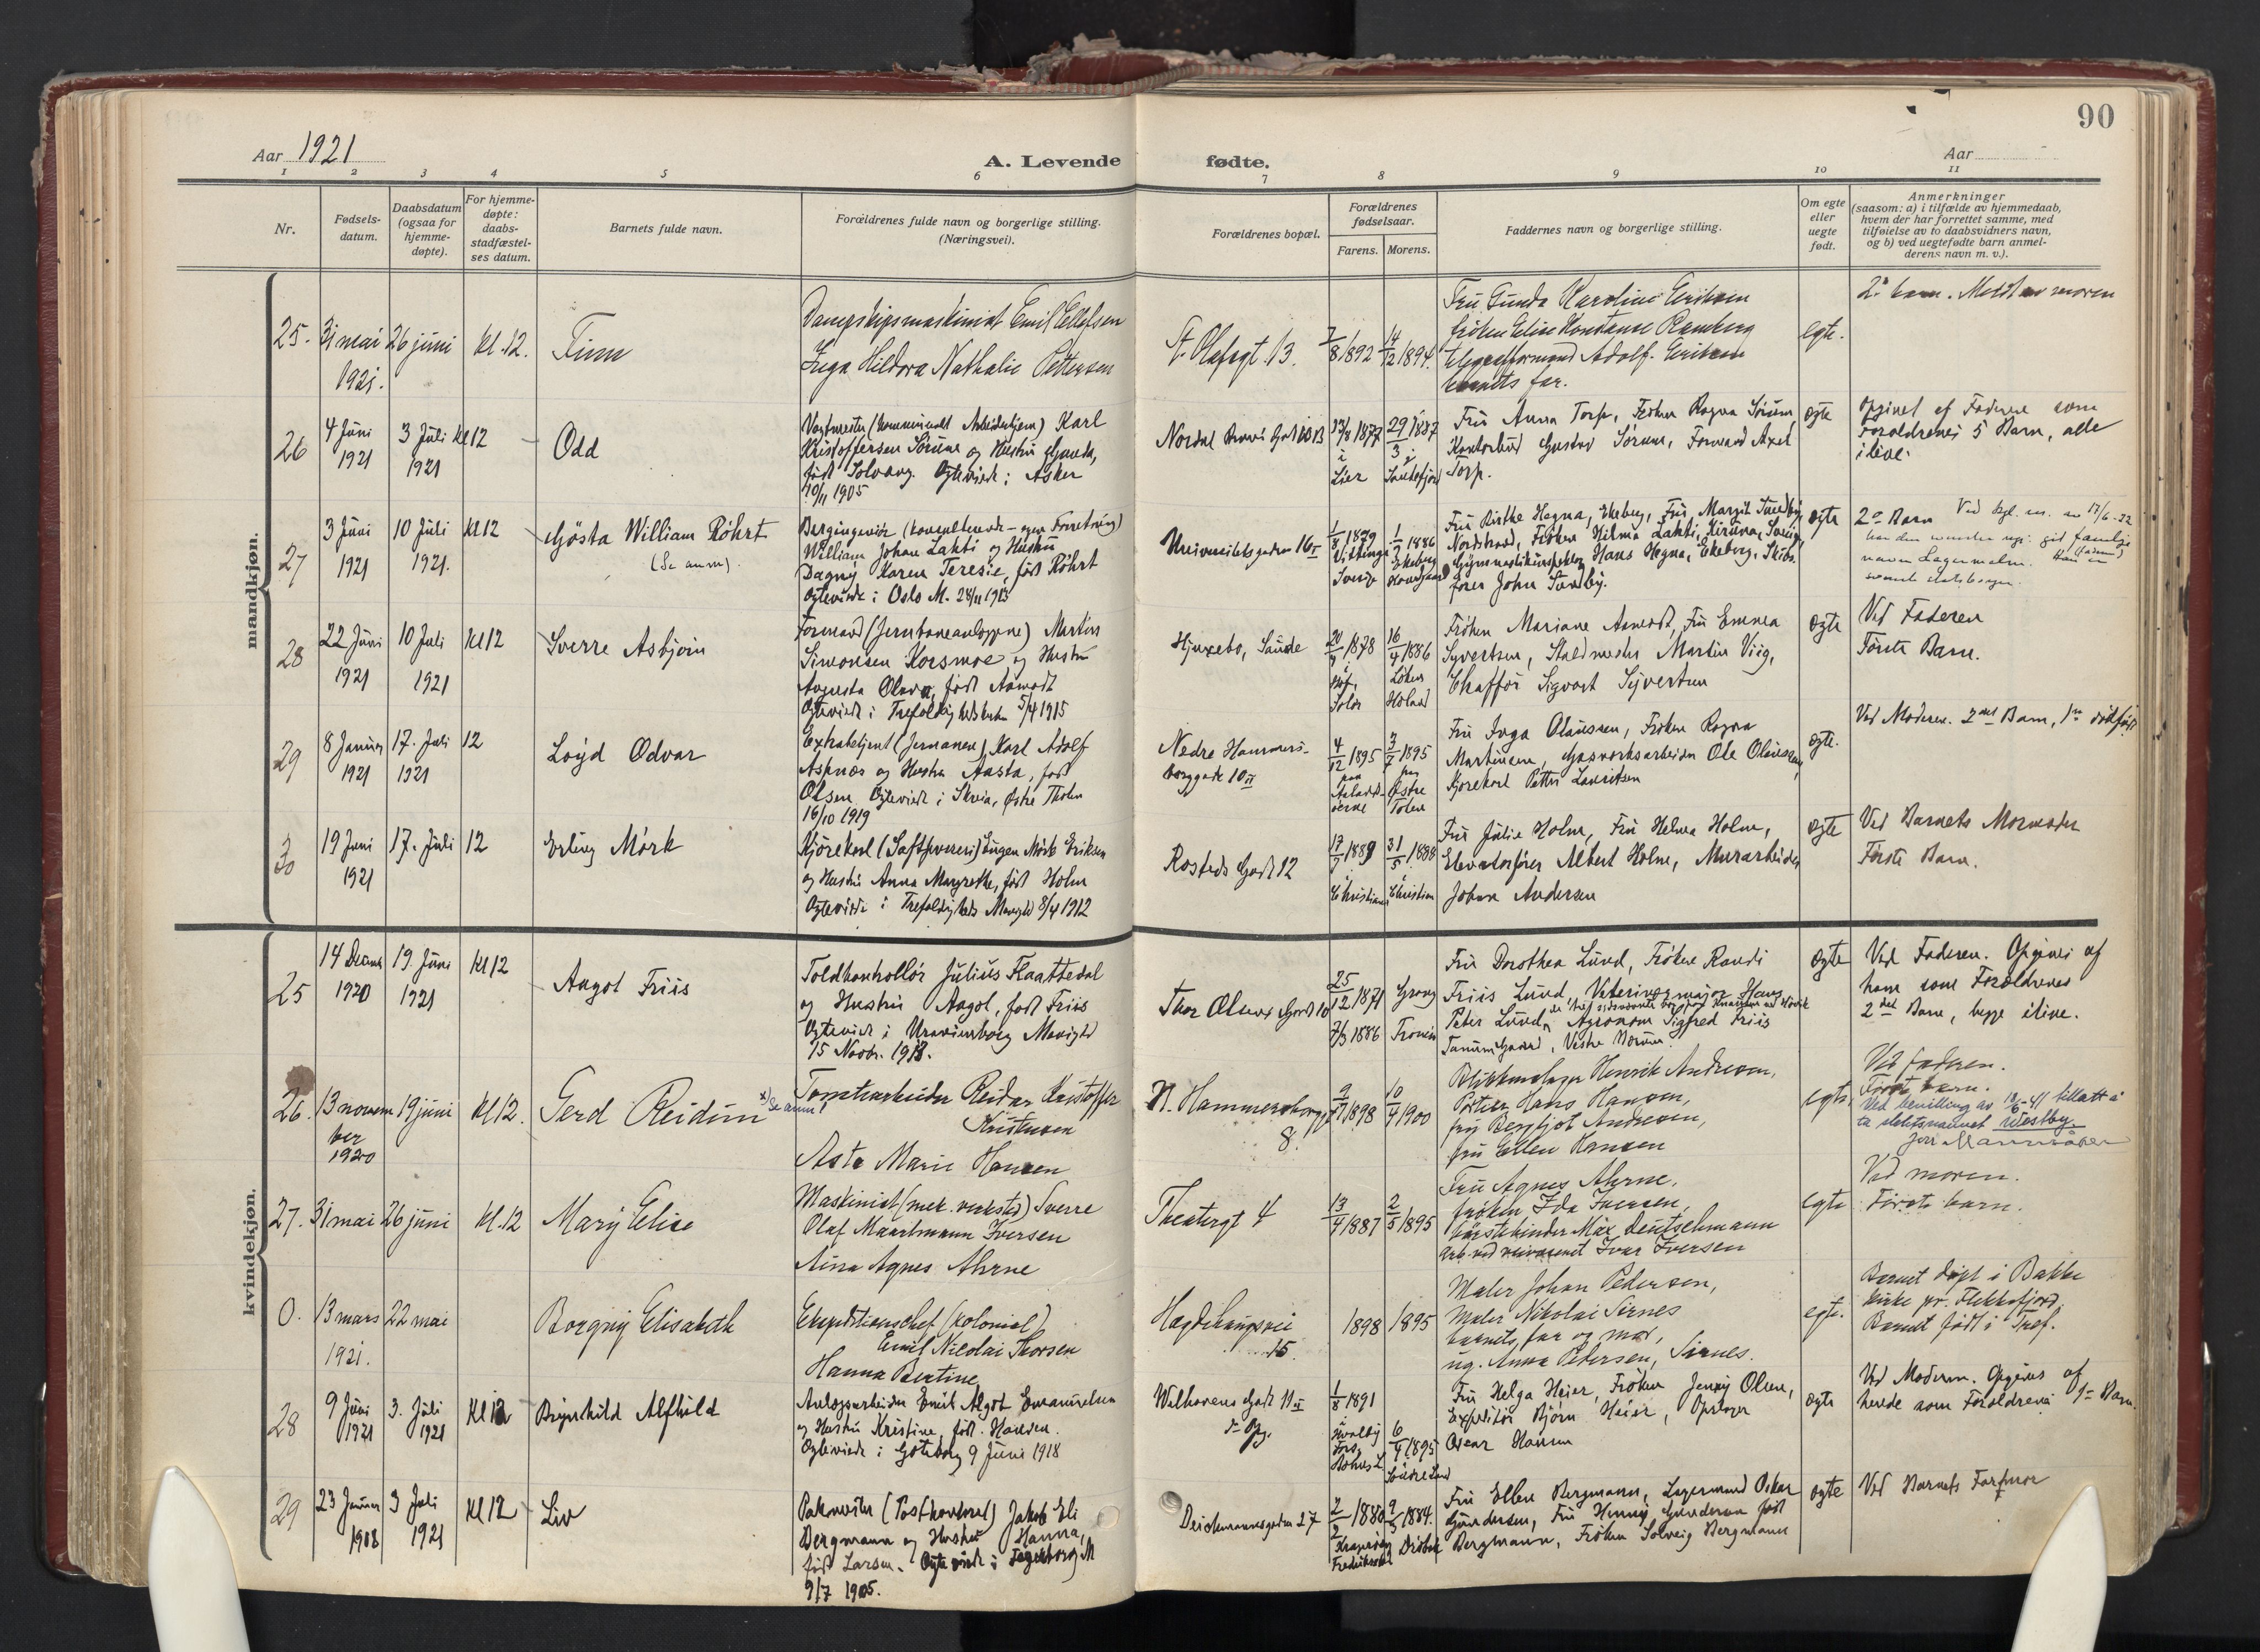 90
Aar 1921
A. Levende fødte.
Aar
1 2 3 4 5 6 7 8 9 10 11
Nr.
Fødsels-
datum.
Daabsdatum
(ogsaa for
hjemme-
døpte).
For hjemme-
døpte:
daabs-
stadfæstel-
ses datum.
Barnets fulde navn.
Forældrenes fulde navn og borgerlige stilling.
(Næringsvei).
Forældrenes bopæl.
Forældrenes
fødselsaar.
Farens. Morens.
Faddernes navn og borgerlige stilling.
Om egte
eller
uegte
født.
Anmerkninger
(saasom: a) i tilfælde av hjemmedaab,
hvem der har forrettet samme, med
tilføielse av to daabsvidners navn,
og b) ved uegtefødte barn anmel-
derens navn m. v.).
mandkjøn.
25. 31 mai 26 juni kl. 12. Finn
1921.
Dampskipsmaskinist Emil Ellefsen
Inga Hildora Nathalie Pettersen
St. Olafsgt. 13.
7/8 1892 14/12 1894.
Fru Gunda Karoline Eriksen
frøken Elise Konstanse Ramberg
telegrafformand Adolf Eriksen
barnets far.
egte.
2. barn. Meldt av moren
26 4 Juni 3 Juli Kl 12 Odd
1921 1921
Vagtmester (kommunalt Arbeidshjem) Karl
Kristoffersen Sørum og Hustru
født Solvang. Ægteviede i Asker
10/11 1905
Nordal Bruns Gade
13/8 1877 29/3 1887
i Lier i Sandefjord
Fru Anna Torp, Frøken Ragna Sørum,
Kontorbud Gustav Sørum, Formand Axel
Torp.
ægte
Opgivet af Faderen som
Forældrenes 5 Barn, alle
ilive.
27 3 Juni 10 Juli Kl 12 Gøsta William Røhrt
1921 1921. (Se anm).
Bergingeniør (konsulterende – egen Forretning)
William Johan Lahti og Hustru
Dagny Karen Teresie, født Røhrt
Ægteviede i Oslo M. 28/11 1913
Universitetsgaden 16 I
1/8 1879 1886
Sverige Ekeberg
Fru Birthe Hegna, Ekeberg, Fru Margit Sundby,
Nordstrand, Frøken Hilma Lahti, Kiruna,
Hans Hegna, Ekeberg, Skibs-
fører John Sundby.
ægte
2 Barn Ved kgl. res. av 17/6-22
navn Lagermalm.
28 22 Juni 10 Juli Kl 12 Sverre Asbjørn
1921 1921
Formand (Jernbaneanlæggene) Martin
Simonsen Korsmoe og Hustru
Augusta Olava, født Aamodt
Ægteviede i Trefoldighedskirken 5/4 1915
Hjuxebo, Saude
1878 16/4 1886
Hof, Solør Løken Høland
Frøken Mariane Aamodt, Fru Emma
Syvertsen, Staldmester Martin Viig,
Chaffør Sigvart Syvertsen
ægte
Ved Faderen
Første Barn.
29 8 Januar 17. Juli 12 Loyd Odvar
1921 1921
Extrabetjent (Jernbanen) Karl Adolf
Aspnæs og Hustru Aasta, født
Olsen Ægteviede i Skreia, Østre Thoten
16/10 1919
Nedre Hammers-
borggade 10 II
4/12 1895 3/7 1895
paa Østre Toten
Fru Inga Olaussen, Frøken Ragna
Martinsen, Gasværksarbeider Ole Olaussen,
Kjørekarl Petter Lauritsen
ægte.
Ved Moderen. 2det Barn, 1ste dødfødt
30 19 Juni 17. Juli 12 Erling Mørk
1921
Kjørekarl (Saftpresseri) Eugen Mørk Eriksen
og Hustru Anna Margrethe, født Holm
Ægteviede i Trefoldigheds Menighed 8/4 1912
Rosteds Gade 12
17/7 1889 31/5 1888
Christiania Christiania
Fru Julie Holm, Fru Helma Holm,
Elevatorfører Albert Holm, Murarbeider
Johan Andersen
ægte
Ved Barnets Mormoder
Første Barn.
kvindekjøn.
25 14 Decemb 19 Juni Kl 12 Aagot Friis
1920 1921
Toldkontrollør Julius Flaattedal
og Hustru Aagot, født Friis
Ægteviede i Uranienborg Menighed
15 Novbr. 1918.
Thor Olsens Gade 10
25/12 1871 Grong
1886
Fru Dorothea Lund, Frøken Randi
Friis Lund, Veterinærmajor Hans
Peter Lund, Agronom Sigfred Friis
Tanum Gaard, Vestre Bærum.
ægte
Ved Faderen. Opgives af
ham som Forældrenes
2det Barn, begge ilive.
26. 13 novem 19 juni kl 12. Gerd Reidun x) se anm!
ber
1920
Tomtearbeider Reidar Kristoffer
Kristensen
Asta Marie Hansen
N. Hammersborggt
8.
1898 10/4 1900
Blikkenslager Henrik Andresen,
Portier Hans Hansen,
fru Bergljot Andresen,
fru Ellen Hansen
egte.
Ved faderen.
Første barn.
Ved bevilling av 18/6-41 tillatt å
ta slektsnavnet Westby.
27. 31 mai 26 juni kl. 12 Mary Elise
Maskinist (mek. verksted) Sverre
Olaf Maartmann Iversen
Aina Agnes Ahrne
Theatergt 4
13/4 1887 2/5 1895
Fru Agnes Ahrne,
frøken Ida Iversen,
børstebinder Max Deutschmann
arb. ved veivæsenet Ivar Iversen
egte
Ved moren.
Første barn.
0. 13 mars 22 mai Borgny Elisabeth
1921.
Ekspeditionschef (kolonial)
Emil Nicolai Thorsen
Hanna Bertine
Hægdehaugsvei
15.
1898 1895
Maler Johan Pedersen,
Maler Nikolai Sirnes
barnets far og mor,
ug. Anna Pedersen, Sirnes.
egte.
Barnet døpt i Bakke
kirke pr. Flekkefjord.
Barnet født i Tref.
28 9 Juni 3. Juli Kl 12 Brynhild Alfhild
1921 1921
Anlægsarbeider Emil Algot Emanuelsen
og Hustru Kristine, født Hansen.
Ægteviede i Gøteborg 9 Juni 1918
Welhavens Gade 11 II
Opg.
1/8 1891 6/4 1895
Fru Helga Heier, Frøken Jenny Olsen,
Expeditør Bjørn Heier, Opslager
Oscar Hansen
ægte
Ved Moderen. Opgives af
hende som Forældrenes 1ste Barn.
29 23 Januar 3 Juli Kl 12 Liv
1908 1921
Pakmester (Postkontoret) Jakob Eli
Bergmann og Hustru Hanna,
født Larsen. Ægteviede i Fagerborg M
9/7 1905.
Deichmannsgaden 27
2/2 1880 1884.
Kraagerøy Fredrikstad Drøbak
Fru Ellen Bergmann, Lagermand Oskar
Gundersen, Fru Henny Gundersen født
Bergmann, Frøken Solveig Bergmann
ægte
Ved Barnets Farmor